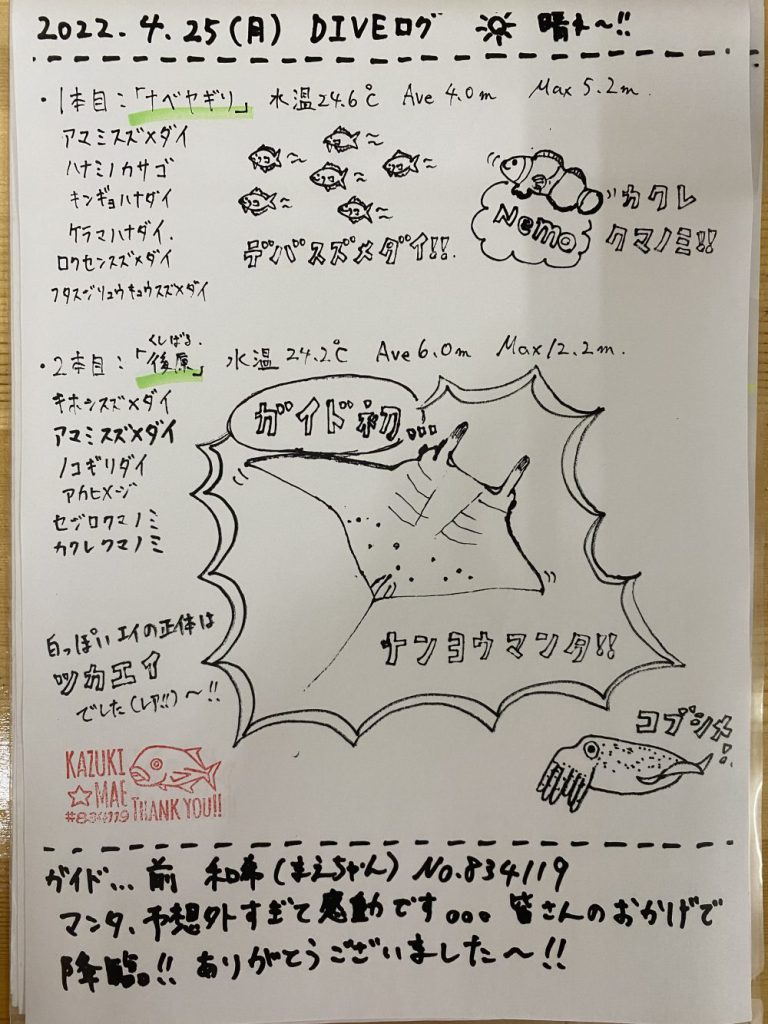 2022.4.25(月) DIVEログ 晴れ〜!!
・1本目:「ナベヤギリ」 水温24.6℃ Ave 4.0m Max 5.2m.
アマミスズメダイ
ハナミノカサゴ
キンギョハナダイ
ケラマハナダイ.
ロクセンスズメダイ
フタスジリュウキュウスズメダイ
デバスズメダイ!!.
Nemo
カクレ
クマノミ!!
くしばる.
・2本目:「後原」 水温24.2℃ Ave 6.0m Max 12.2m.
キホシスズメダイ
アマミスズメダイ
ノコギリダイ
アカヒメジ
セジロクマノミ
カクレクマノミ
ガイド初...
ナンヨウマンタ!!
白っぽいエイの正体は
ツカエイ
でした(レア!!)〜!!
コブシメ!
KAZUKI
☆MAE
#834119 THANK YOU!!
ガイド... 前 和希(まえちゃん) No.834119
マンタ、予想外すぎて感動です。。。皆さんのおかげで
降臨!! ありがとうございました〜!!